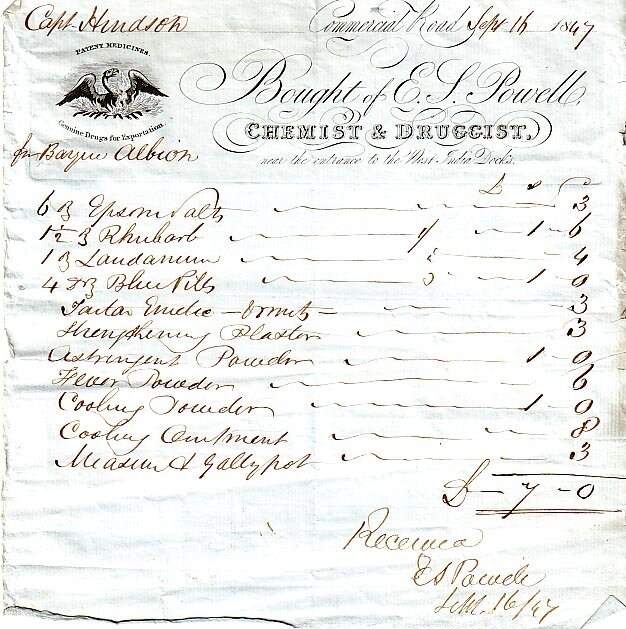 Capt Hindson Commercial Road Sept 16 1847
PATENT MEDICINES.
Genuine Drugs for Exportation.
Bought of E. S. Powell,
CHEMIST & DRUGGIST,
for Barque Albion
near the entrance to the West India Docks.
£ s
6 ℥ Epsom Salts 3
1½ ℥ Rhubarb 1 - 6
1 ℥ Laudanum 4
4 Blue Pills 1 - 0
Tartar Emetic - Vomits - 3
Strengthening Plaster 3
Astringent Powder 1 - 0
Fever Powder 6
Cooling Powder 1 - 0
Cooling Ointment 8
Measure & Gallypot 3
£ - 7 - 0
Received
E S Powell
Sept. 16/47